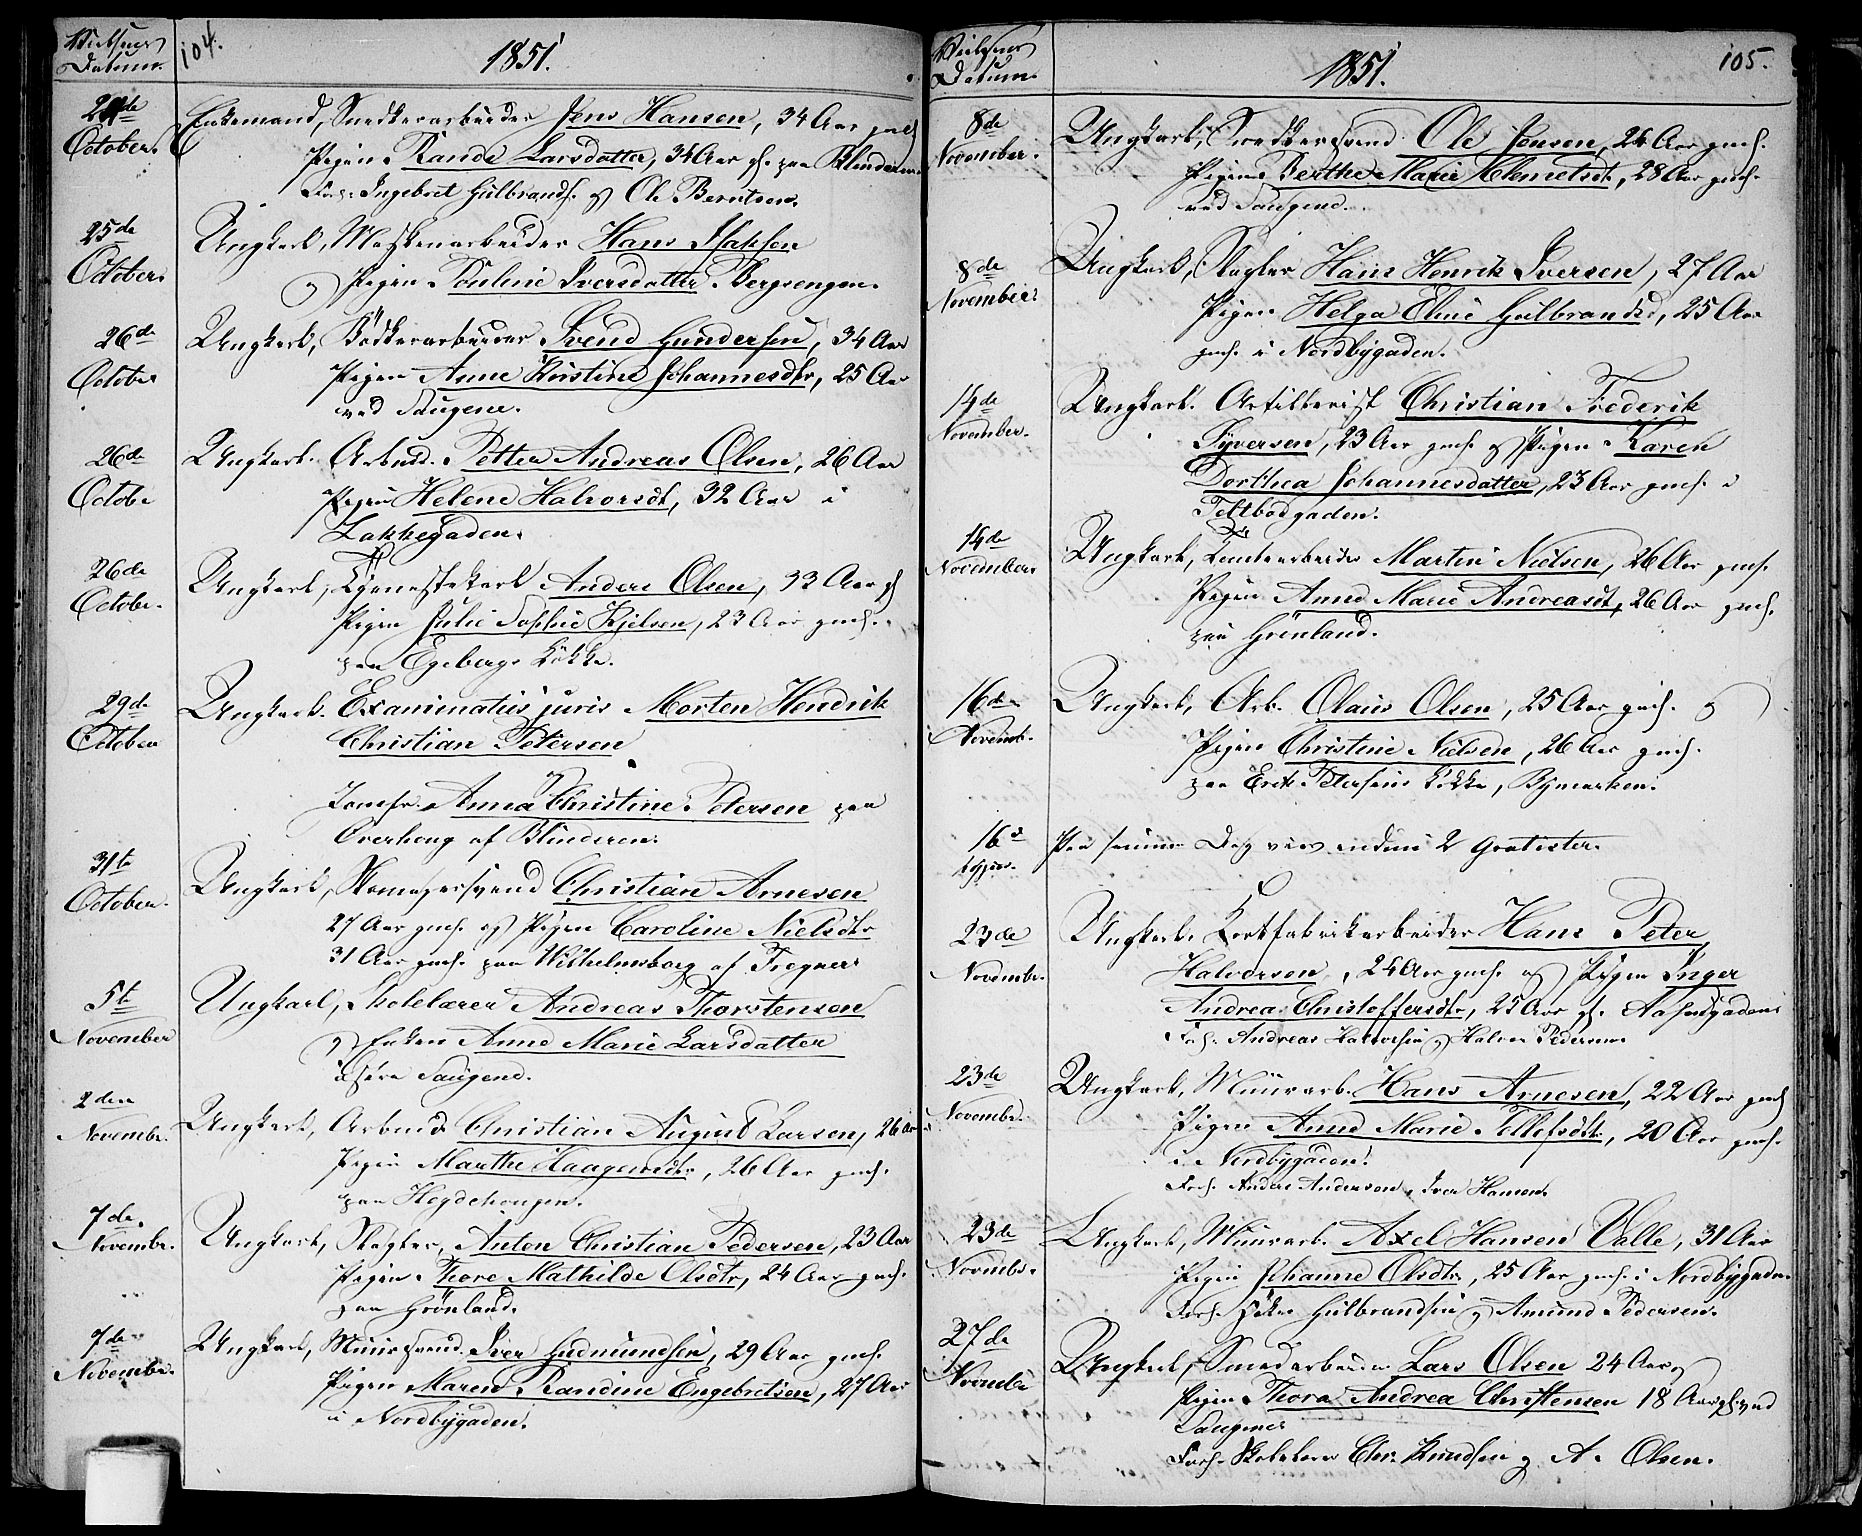 Vielsens
Datum.
104.
1851.
24de
October.
Enkemand, Snedkerarbeider Jens Hansen, 34 Aar
Pigen Rande Larsdatter, 34 Aar gl. paa Blinderen
Forl. Ingebret Gulbrands. og Ole Berntsen.
25de
October.
Ungkarl, Hans Isaksen
og Pigen Pauline Iversdatter Bergsengen.
26de
October
Ungkarl, Bødkerarbeider Svend Gundersen, 34 Aar
Pigen Anne Kirstine Johannesdtr, 25 Aar
ved Saugene.
26de
Octobe
Ungkarl. Arbeid. Petter Andreas Olsen, 26 Aar
Pigen Helene Halvorsdt, 32 Aar i
Lakkegaden.
26de
Octobr.
Ungkarl, Tjenestekarl Anders Olsen, 33 Aar gl
Pigen Julie Sophie Kjelsen, 23 Aar gml.
paa Egebergs Løkke.
29de
October
Ungkarl. Examinatus juris Morten Hendrik
Christian Petersen
Jomfr. Anna Christine Petersen paa
Overhoug af Blinderen.
31te
October.
Ungkarl, Skomagersvend Christian Arnesen
27 Aar gml. og Pigen Caroline Nielsdtr
31 Aar gml. paa Wilhelmsborg af Tregner
5te
November
Ungkarl, Skolelærer Andreas Thorstensen
og Enken Anne Marie Larsdatter
Saugene.
2den
Novembr.
Ungkarl, Arbeid Christian August Larsen, 26 Aar
Pigen Marthe Haagensdtr, 26 Aar gml.
paa Hegdehougen.
7de
Novembr.
Ungkarl, Slagter, Anton Christian Pedersen, 23 Aar
Pigen Thore Mathilde Olsdtr, 24 Aar gml.
paa Grönland.
7de
November.
Ungkarl, Muursvend Iver Gudmundsen, 29 Aar gml.
Pigen Maren Randine Engebretsen, 27 Aar
i Nordbygaden.
Vielsens
Datum.
1851.
105.
8de
November.
Ungkarl, Snedkersvend Ole Jensen, 24 Aar gml.
Pigen Berthe Marie Clemetsdt, 28 Aar gml.
ved Saugene.
8de
November.
Ungkarl, Slagter Hans Henrik Iversen, 27 Aar
Pigen Helga Eline Gulbrandsd, 25 Aar
gml. i Nordbygaden.
14de
November.
Ungkarl. Artillerist Christian Frederik
Syversen, 23 Aar gml. og Pigen Karen
Dorthea Johannesdatter, 23 Aar gml. i
Teltbodgaden.
14de
November
Ungkarl, Martin Nielsen, 26 Aar gml.
Pigen Anne Marie Andreasdt, 26 Aar gml.
paa Grönland.
16de
Novemb.
Ungkarl, Arb. Olaus Olsen, 25 Aar gml. og
Pigen Christine Nielsen, 26 Aar gml.
paa Erik Petersens Løkke, Bymarken.
16d
Paa samme Dag viet endnu 2 Gratister.
23de
Novembr.
Ungkarl. Kortfabrikarbeider Hans Peter
Halvorsen, 24 Aar gml. og Pigen Inger
Andrea Christoffersdtr, 25 Aar gl.
Forl. Andreas Halvorsen og Halvor Pedersen.
23de
Novembr.
Ungkarl, Muurarb. Hans Arnesen, 22 Aar gml
Pigen Anne Marie Tollefsdtr, 20 Aar gml.
i Nordbygaden.
Forl. Anders Andersen, Iver Hansen.
23de
Novembr.
Ungkarl, Muurarb. Axel Hansen Valle, 31 Aar
Pigen Johanne Olsdtr, 25 Aar gml. i Nordbygaden
Forl. Gulbrandsen og Amund Pedersen.
27de
Novembr
Ungkarl, Smedarbeider Lars Olsen 24 Aar og
Pigen Thora Andrea Christensen 18 Aar gl. ved
Saugene
Forl. Skolelærer Chr. Knudsen og A. Olsen.